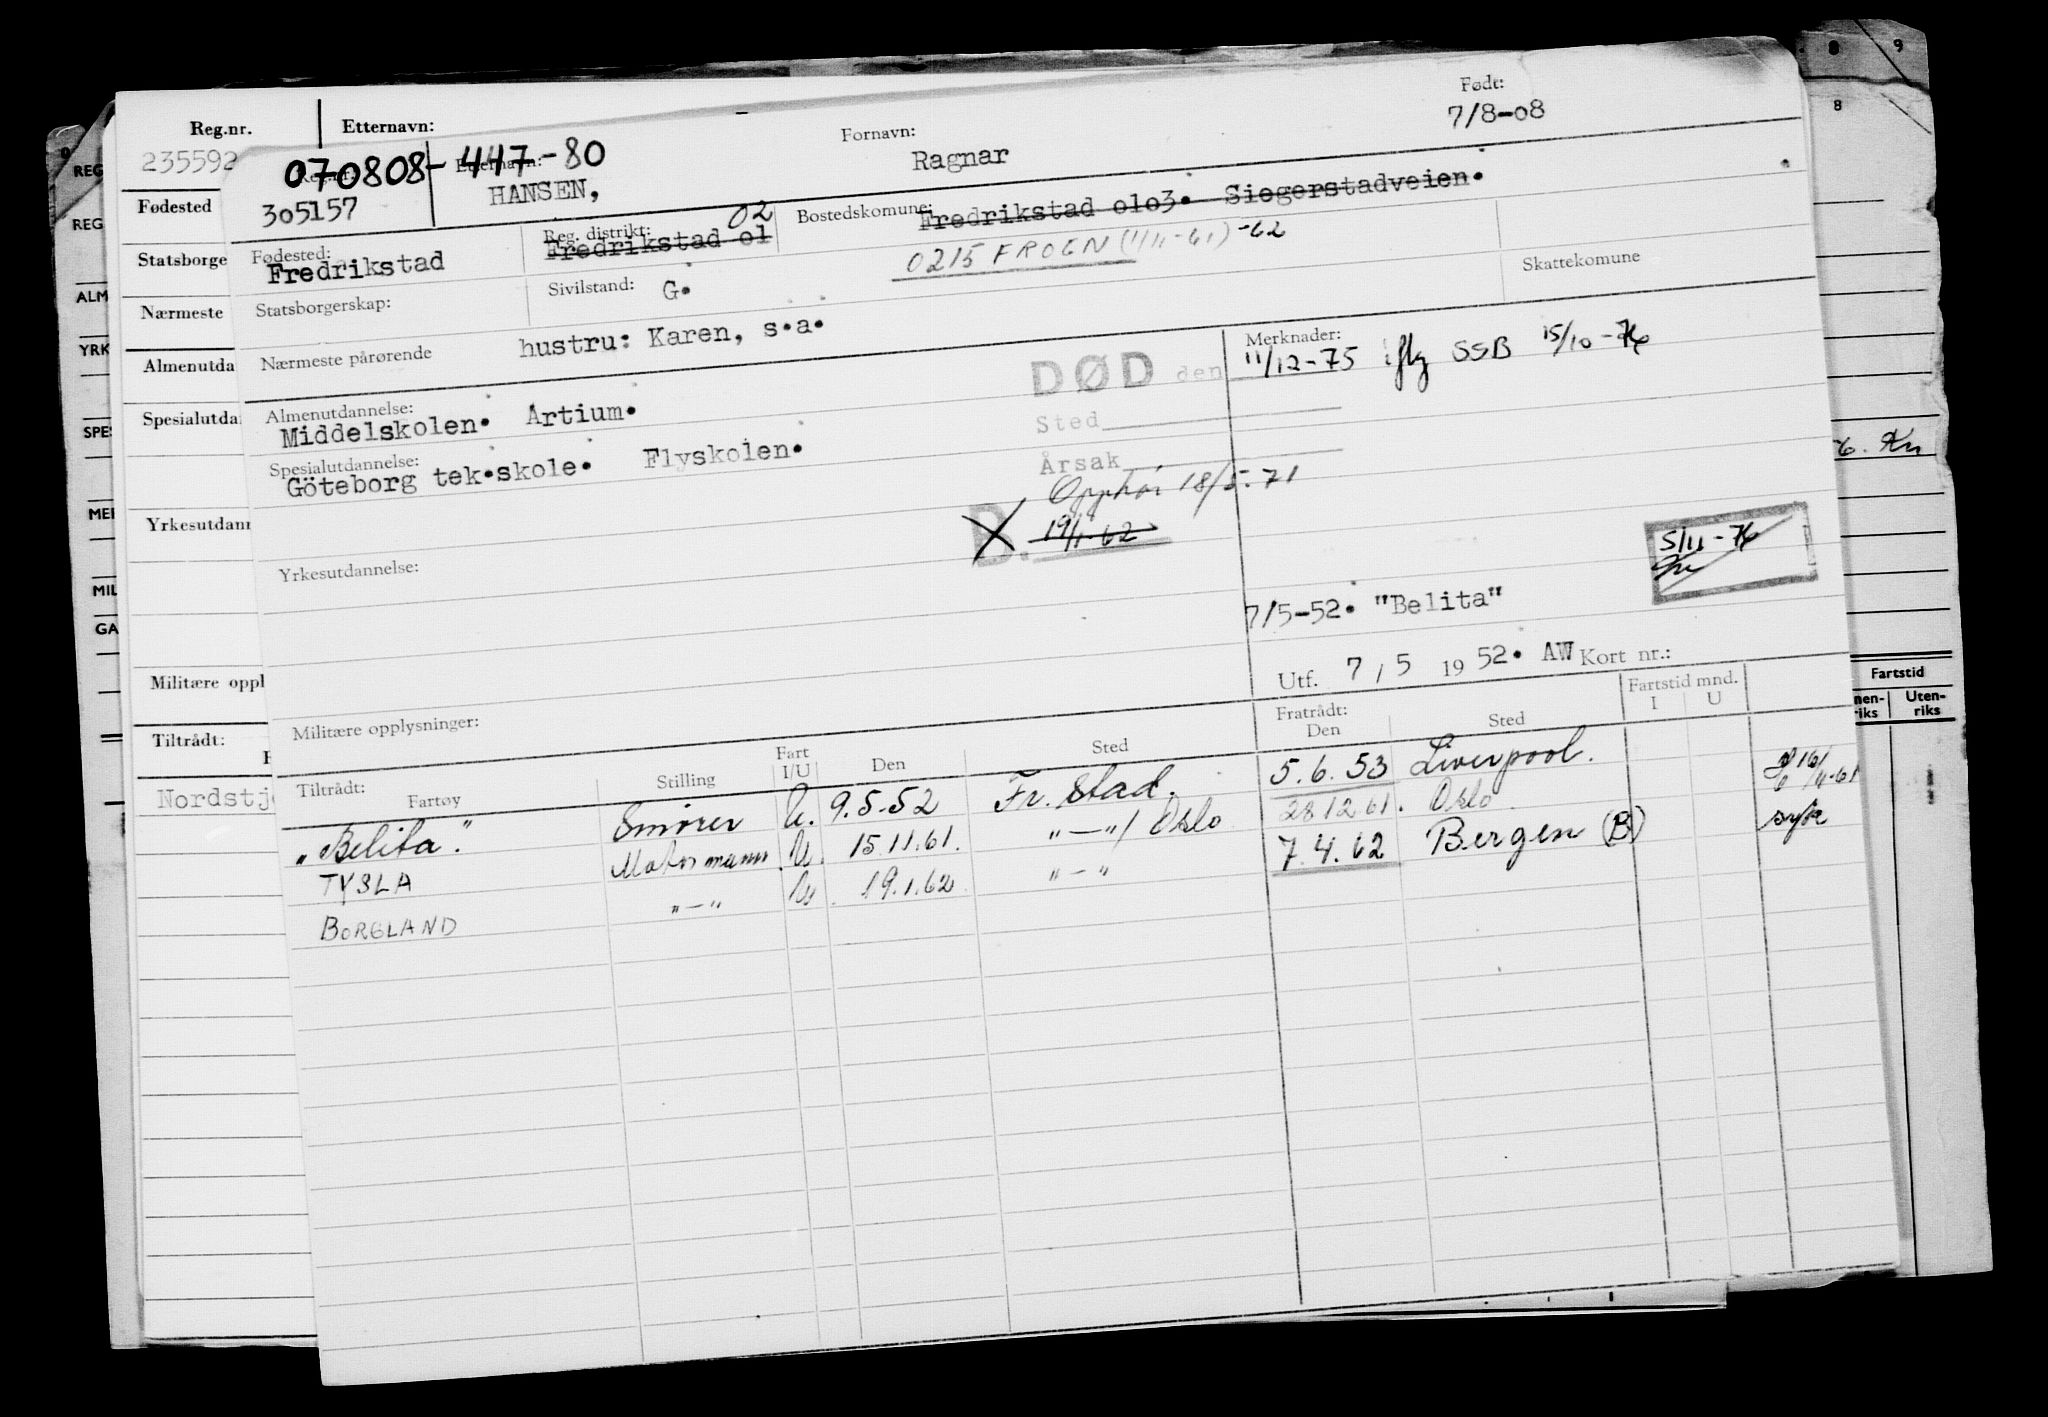 Født:
7/8-08
Reg.nr.
Etternavn:
Fornavn:
235592
070808-447-80
Ragnar
305157
HANSEN,
Fødested
Reg. distrikt: 02
Bostedskomune:
Fredrikstad 01
Fredrikstad 0103. Siegerstadveien.
Statsborge
Fødested:
Fredrikstad
0215 FROGN (1/11-61) -62
Sivilstand: G.
Skattekomune
Nærmeste
Statsborgerskap:
Nærmeste pårørende
hustru: Karen, s.a.
Merknader:
DØD den 11/12-75 iflg SSB 15/10-76
Almenutda
Almenutdannelse:
Middelskolen. Artium.
Sted
Spesialutda
Spesialutdannelse:
Göteborg tek.skole. Flyskolen.
Årsak
Opphør 18/5-71
B. 19/1-62
5/11-76
Yrkesutdann
Yrkesutdannelse:
7/5-52. "Belita"
Utf. 7/5 1952. AW Kort nr.:
Militære oppl
Militære opplysninger:
Fratrådt:
Den
Sted
Fartstid mnd.
I U
Fartstid
Uten-
riks
Tiltrådt:
Tiltrådt:
Fartøy
Stilling
Fart
I/U
Den
Sted
Nordstj
"Belita". Smører U. 9.5.52 Fr.stad. 5.6.53 Liverpool.
TYSLA Motormann U. 15.11.61. "-"/Oslo 28.12.61. Oslo.
BORGLAND "-" U. 19.1.62 "-" 7.4.62 Bergen (B) syk